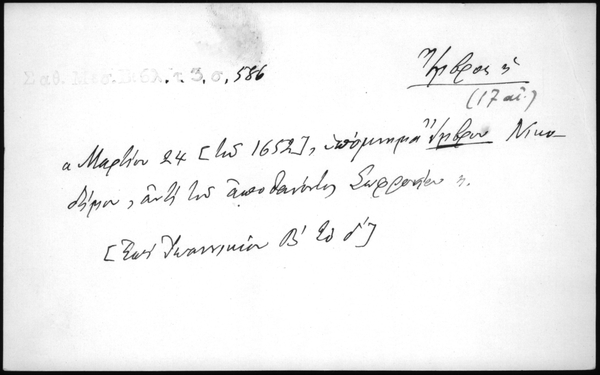 Σαθ. Μεσ. Βιβλ. τ. 3, σ. 586
Ἴμβρος ἡ
(17 αἰ.)
α Μαρτίου 24 [τοῦ 1652], ὑπόμνημα Ἴμβρου Νικο-
δήμου, ἀντὶ τοῦ ἀποθανόντος Σωφρονίου κ.
[Ἐπὶ Ἰωαννικίου Β΄ τὸ δ΄]